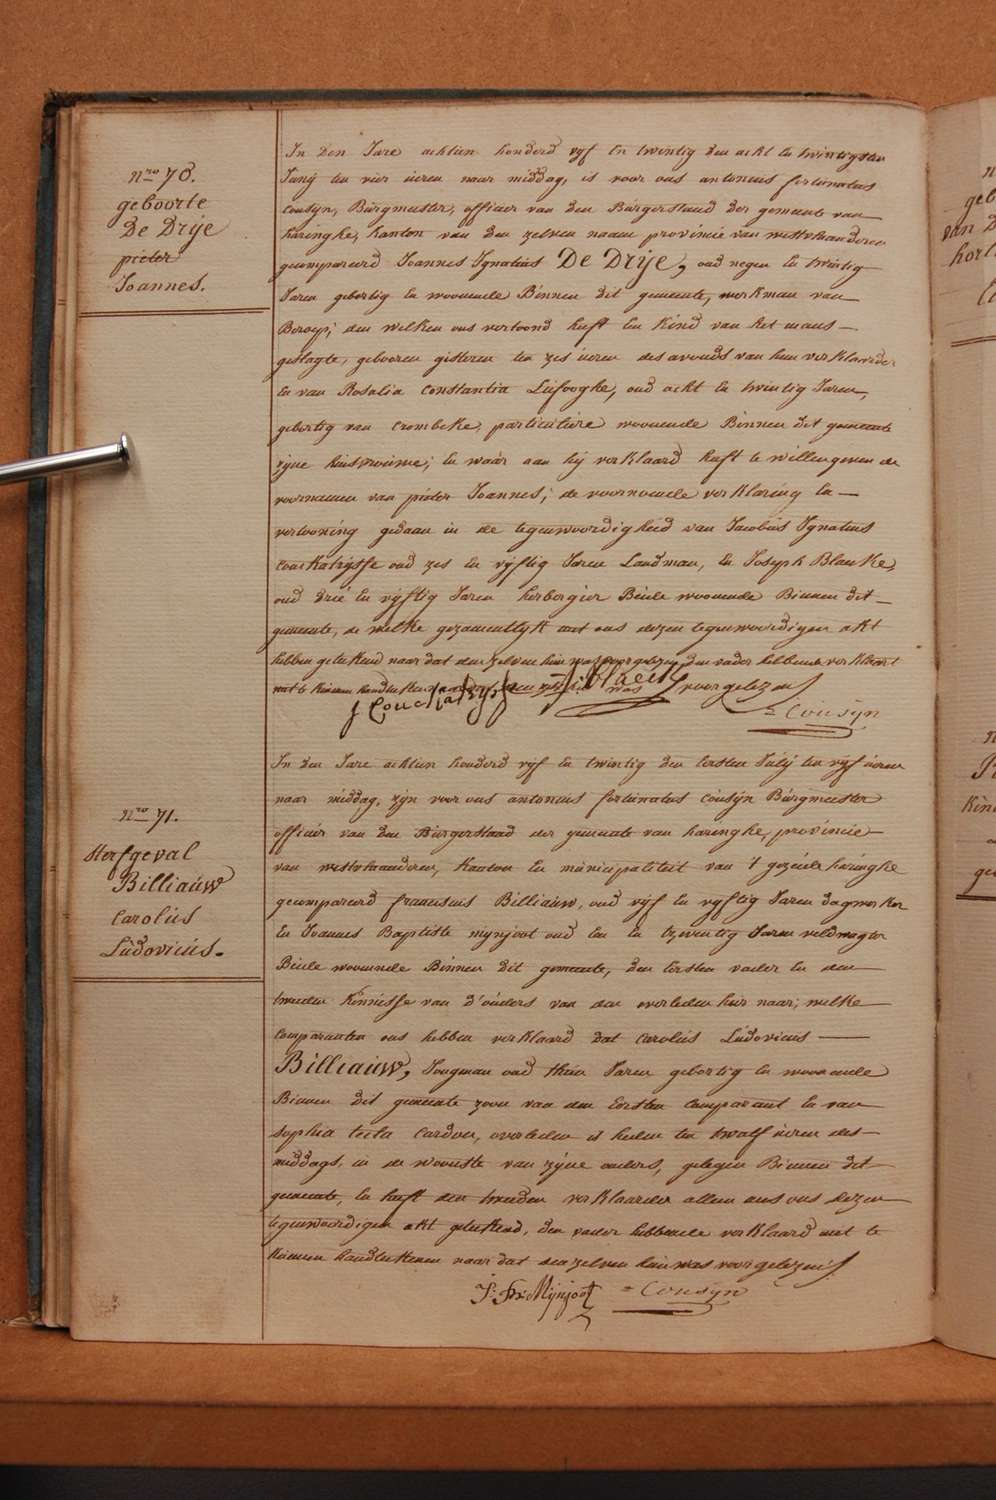 nro 70.
geboorte
De Drije
pieter
Joannes.
In den Jare achtien honderd vyf en twintig den acht en twintigsten
Junij ten vier ueren naer middag, is voor ons antonius fortunatus
Cousijn, Burgmeester, officier van den Burgerstand der gemeente van
haringhe, kanton van den zelven naem provincie van westvlaanderen
gecompareerd Joannes Ignatius De Drije, oud negen en twintig
Jaren gebortig en woonende Binnen dit gemeente, werkman van
Beroep; den welken ons vertoond heeft een kind van het mans-
geslagte, gebooren gisteren ten zes ueren des avonds van hem verklaerder
en van Rosalia Constantia Liefooghe, oud acht en twintig Jaren,
gebortig van Crombeke, particuliere woonende Binnen dit gemeente
zyne huisvrouwe; en waer aen hij verklaard heeft te willen geven de
voornamen van pieter Joannes; de voornoemde verklaring en
vertooning gedaen in de tegenwoordigheid van Jacobus Ignatius
Couckalrijsse oud zes en vijftig Jaren Landman, en Joseph Blaeke,
oud drie en vijftig Jaren herbergier Beide woonende Binnen dit
gemeente, de welke gezamentlyk met ons dezen tegenwoordigen akt
hebben geteekend naer dat den zelven hun was voorgelezen den vader hebbende verklaert
niet te kunnen handteekenen was voorgelezen
Cousijn
nro 71.
sterfgeval
Billiauw
Carolus
Ludovicus.
In den Jare achtien honderd vyf en twintig den Eersten Julij ten vyf ueren
naer middag, zijn voor ons antonius fortunatus Cousijn Burgmeester
officier van den Burgerstand der gemeente van haringhe, provincie
van westvlaanderen, kanton en municipaliteit van 't gezeide haringhe
gecompareerd franciscus Billiauw, oud vijf en vyftig Jaren dagwerker
en Joannes Baptiste mynjoot oud een en tzeventig Jaren veldwagter
Beide woonende Binnen dit gemeente, den Eersten vader en den
tweeden kennisse van d'ouders van den overleden hier naer; welke
comparanten ons hebben verklaard dat Carolus Ludovicus
Billiauw, Jongman oud thien Jaren gebortig en woonende
Binnen dit gemeente zoon van den Eersten Comparant en van
sophia tecla Cardon, overleden is heden ten twalf ueren des
middags, in de wooniste van zijne ouders, gelegen Binnen dit
gemeente, en heeft den tweeden verklaerder alleen met ons dezen
tegenwoordigen akt geteekend, den vader hebbende verklaard niet te
kunnen handteekenen naer dat den zelven hun was voorgelezen
J: Bte Mijnjoot
Cousijn